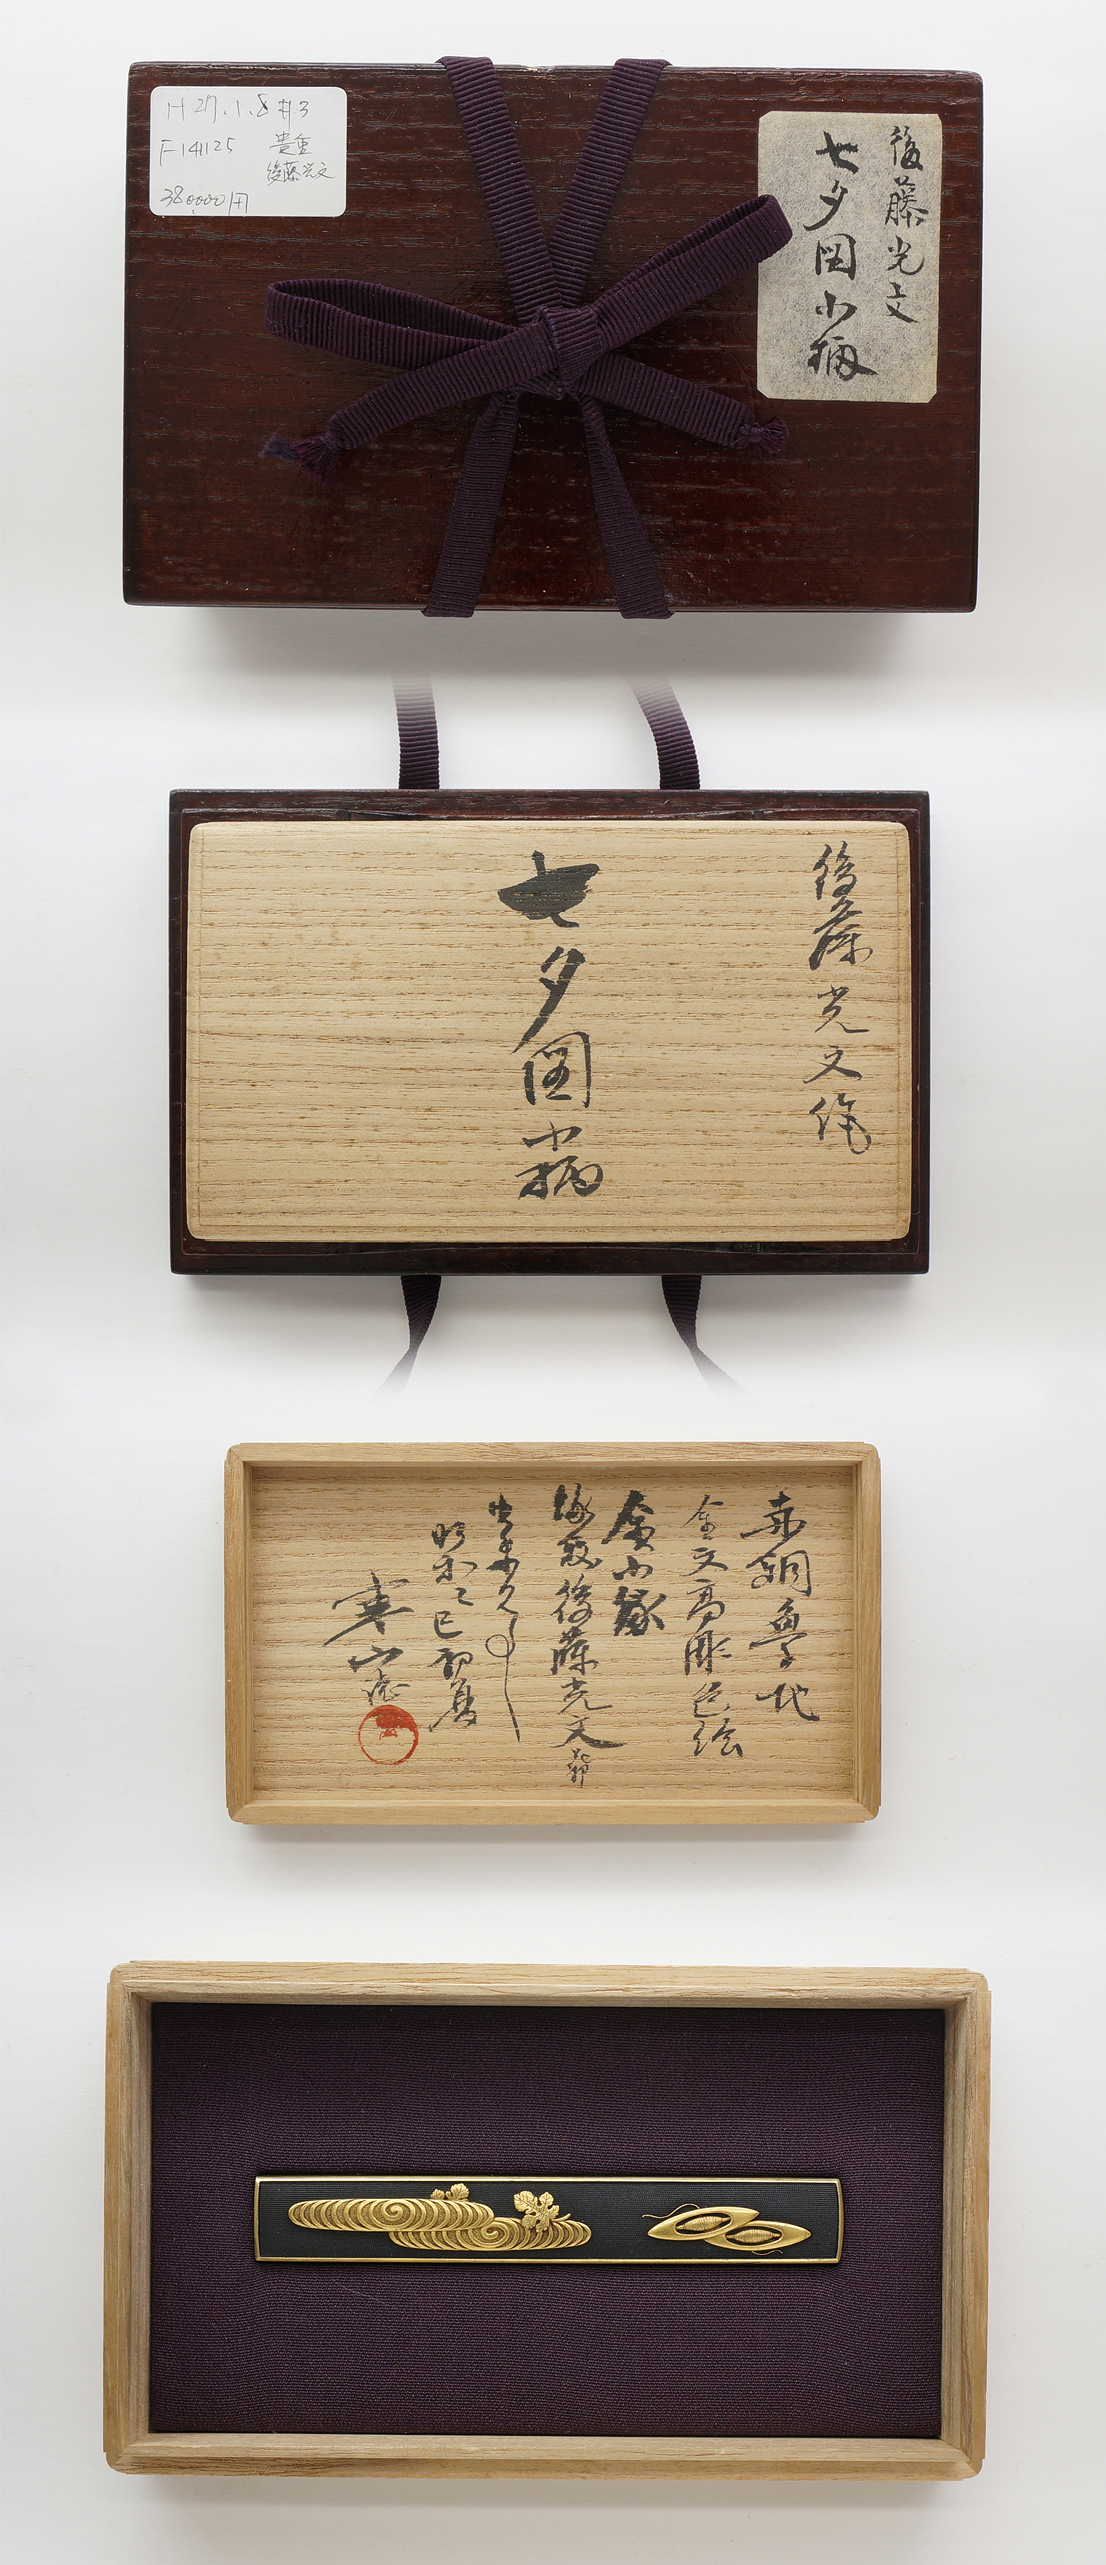 H27.1.8 #3
F14125 貴重
後藤光文
380000円
後藤光文
七夕図小柄
後藤光文作
七夕図小柄
赤銅魚子地
金文高彫色絵
金小縁
後藤光文
昭和乙巳初夏
寒山誌